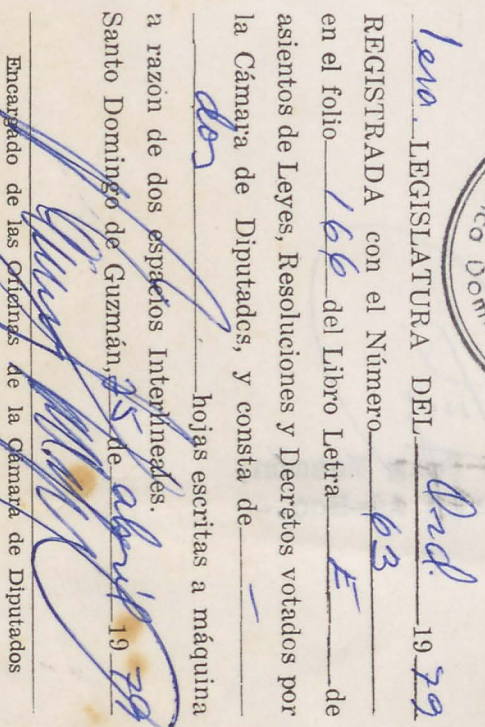 co Dom
1era. LEGISLATURA DEL Ord. 1979
REGISTRADA con el Número 63
en el folio 166 del Libro Letra E de
asientos de Leyes, Resoluciones y Decretos votados por
la Cámara de Diputados, y consta de —
dos hojas escritas a máquina
a razón de dos espacios Interlineales.
Santo Domingo de Guzmán, 25 de abril 1979
Encargado de las Oficinas de la Cámara de Diputados